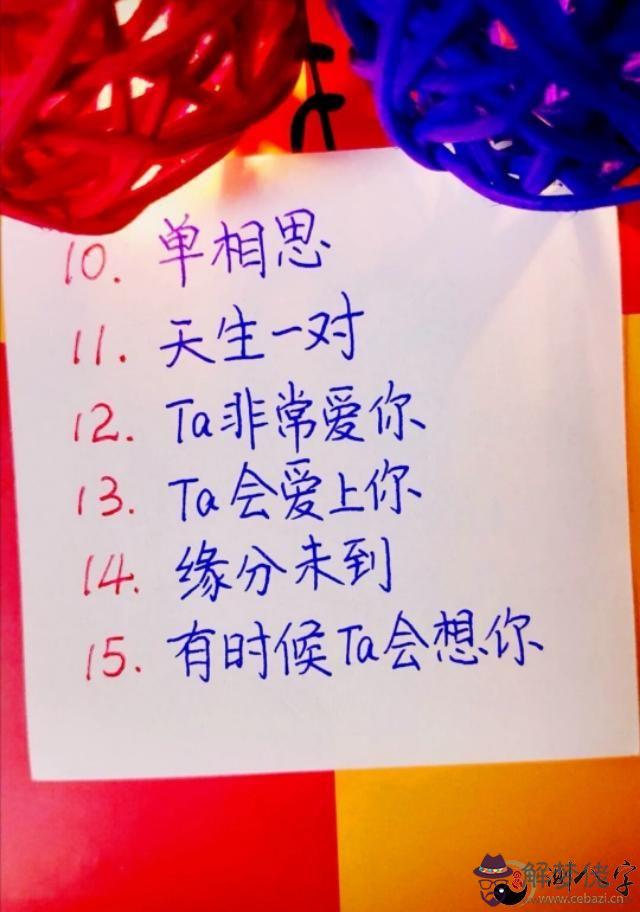 10. 单相思
11. 天生一对
12. Ta非常爱你
13. Ta会爱上你
14. 缘分未到
15. 有时候Ta会想你
解梦佬
www.cebazi.cn